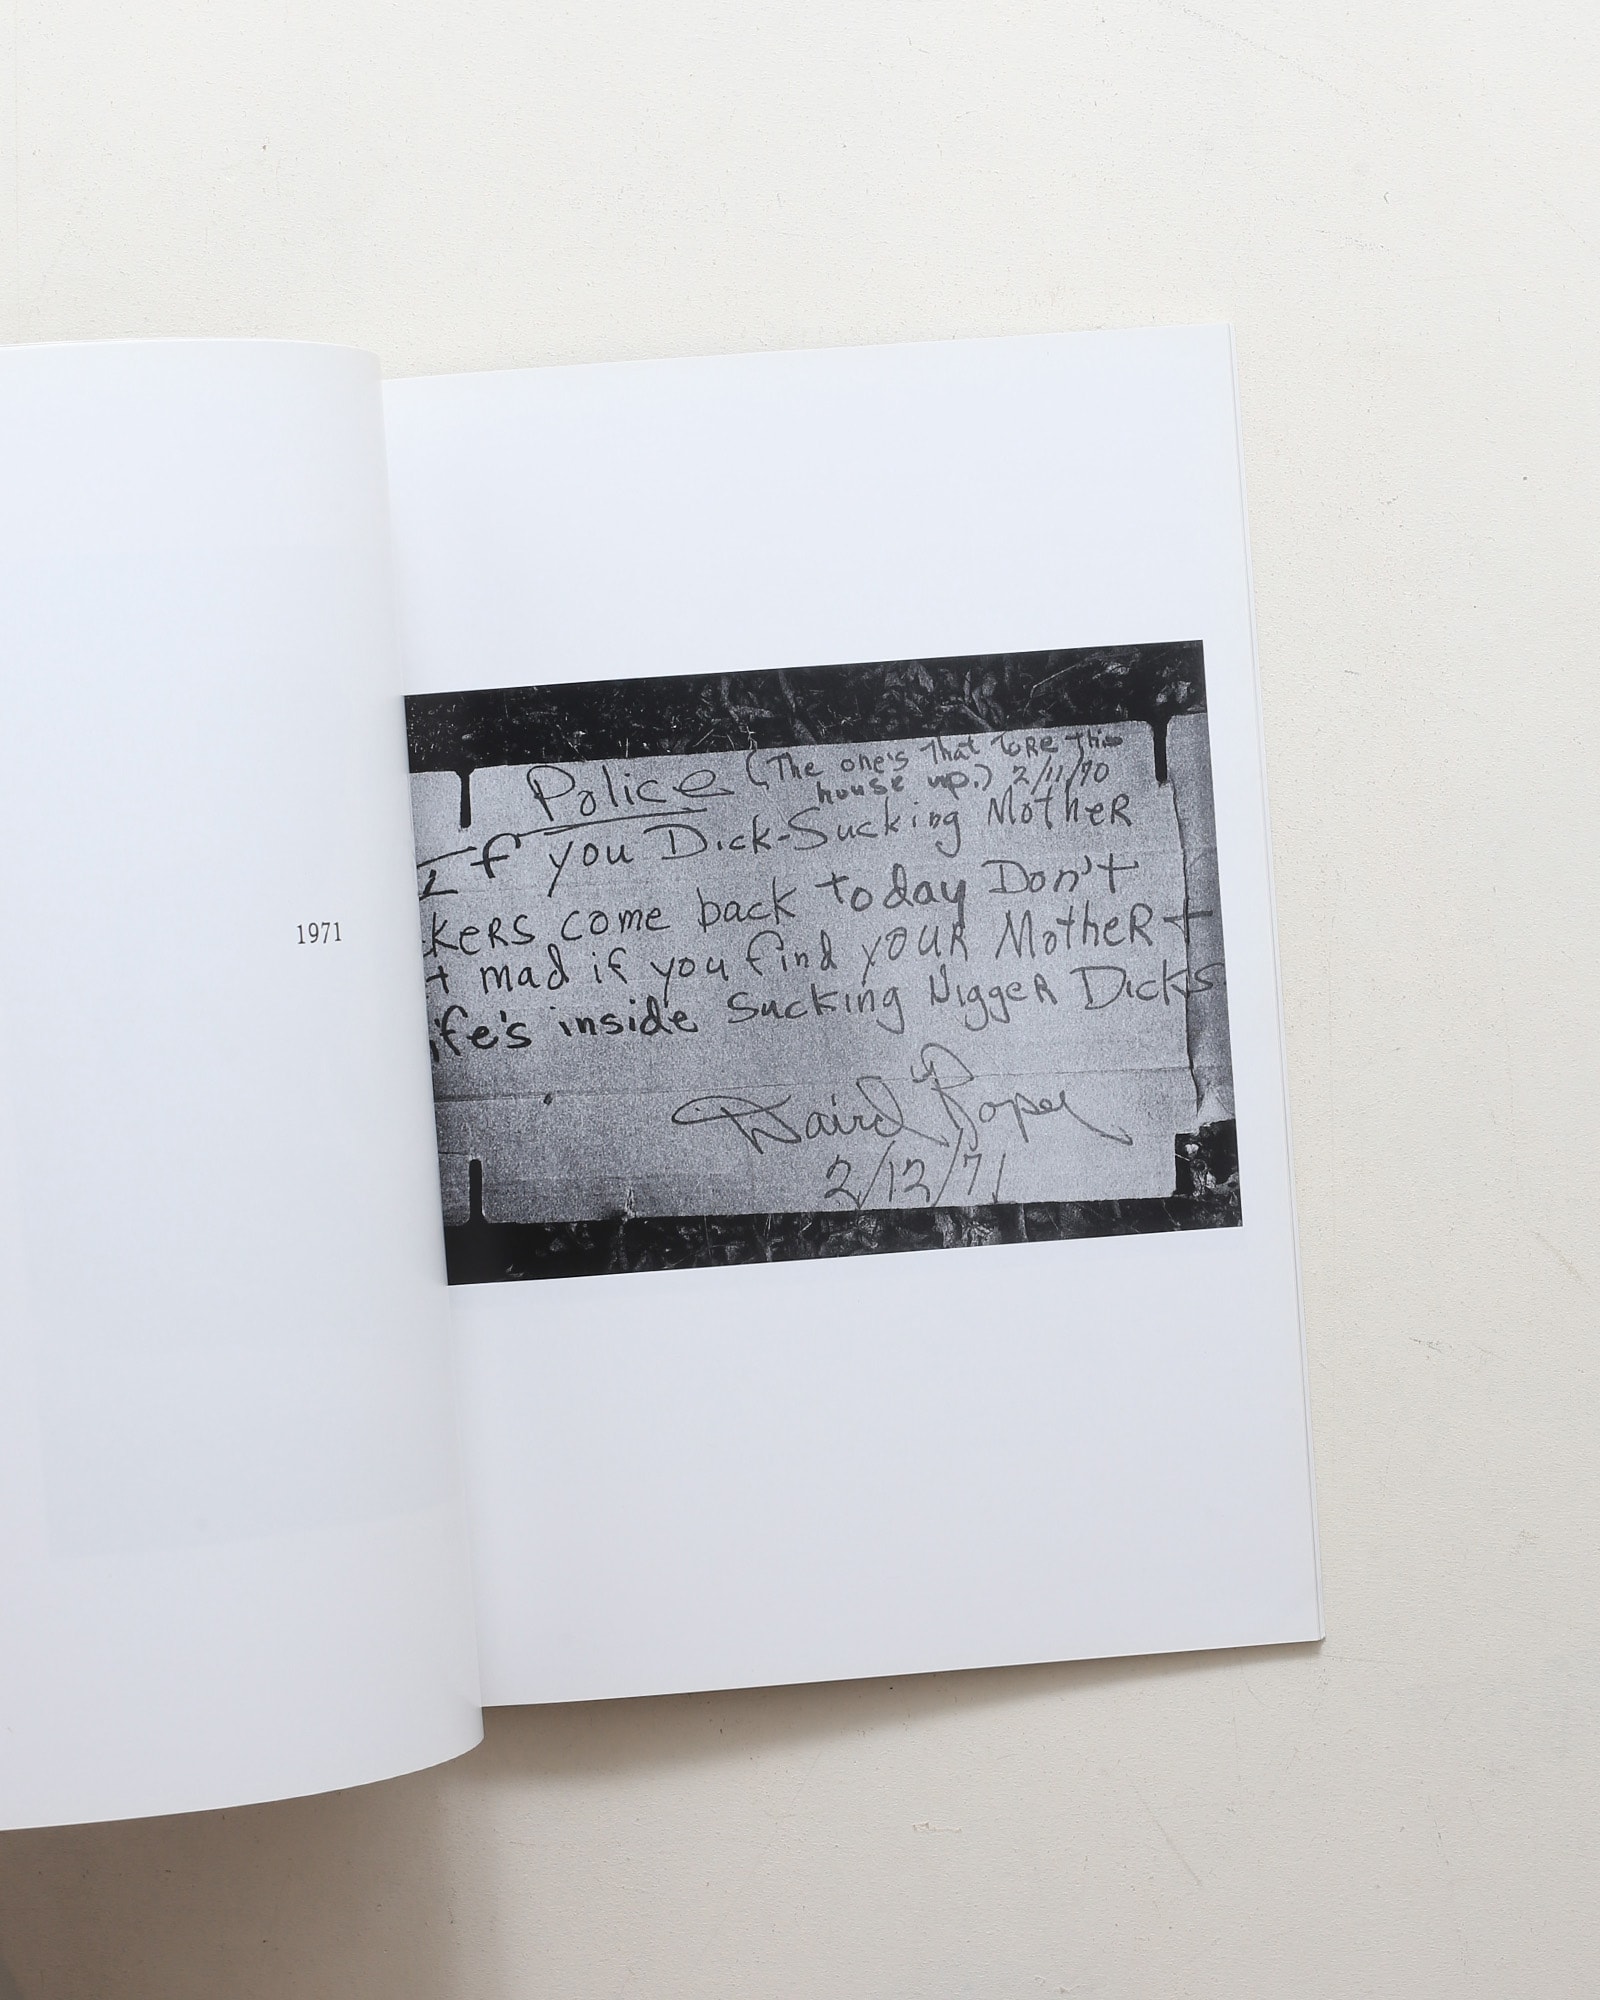 1971
Police (The one's that Tore this
house up.) 2/11/70
If you Dick-Sucking Mother
kers come back today Don't
t mad if you find your Mother +
ife's inside sucking Nigger Dicks
2/12/71